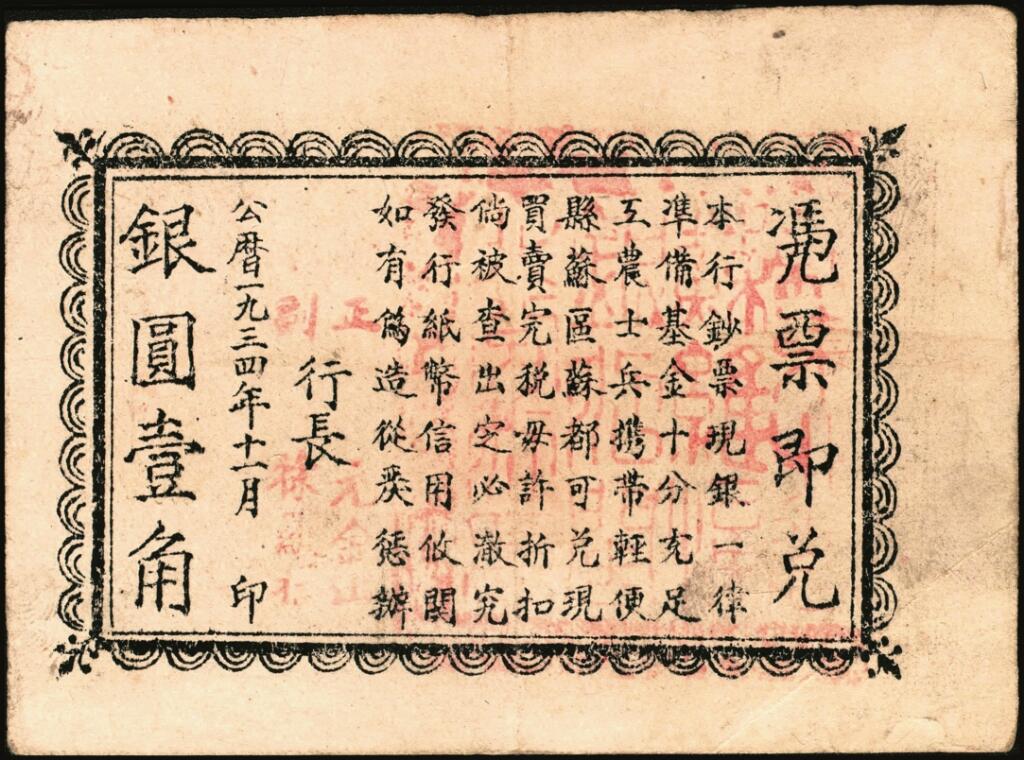 憑票即兑
本行鈔票現銀一律
準備基金十分充足
工農士兵携帶輕便
縣蘇區蘇都可兑現
買賣完税毋許折扣
倘被查出定必澈究
發行紙幣信用攸関
如有僞造從嚴懲辦
行長
正
副
公曆一九三四年十一月 印
銀圓壹角